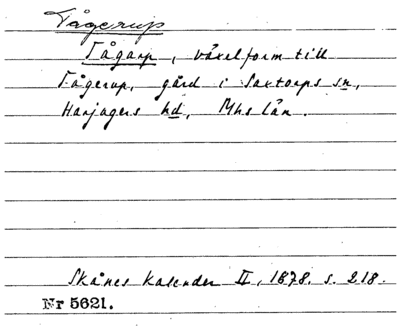 Tågerup
Tågarp, växelform till
Tågerup, gård i Saxtorps sn,
Harjagers hd, Mhs län.
Skånes Kalender II, 1878. s. 218.
Nr 5621.